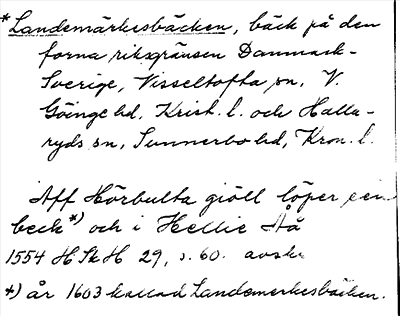 *Landemärkesbäcken, bäck på den
forna riksgränsen Danmark-
Sverige, Visseltofta sn, V.
Göinge hd, Krist. l. och Halla-
ryds sn, Sunnerbo hd, Kron. l.
Aff Hörbulta giöll löper ein
beck*) och i Hellie Aå
1554 HSkH 29, s. 60. avskr
*) år 1603 kallad Landemerkesbäcken.